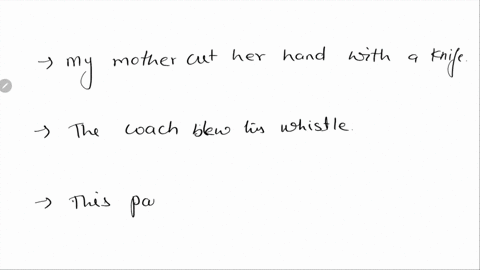 → My mother cut her hand with a knife.
→ The coach blew his whistle.
→ This pa